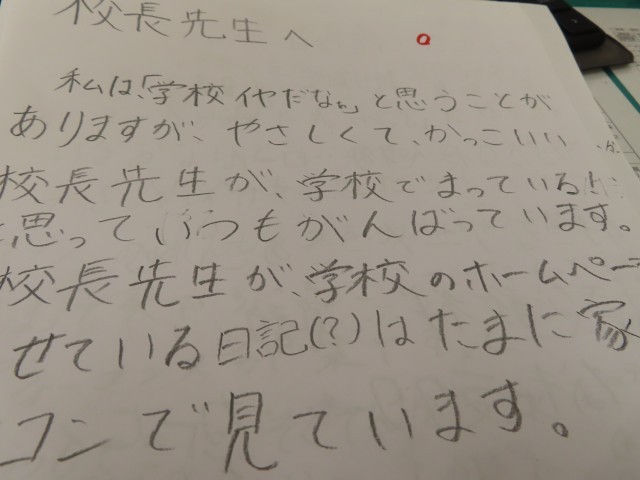 校長先生へ
私は、「学校イヤだな。」と思うことが
ありますが、やさしくて、かっこいい
校長先生が、学校でまっている!!
思っていつもがんばっています。
校長先生が、学校のホームペー
せている日記(?)はたまに家
コンで見ています。